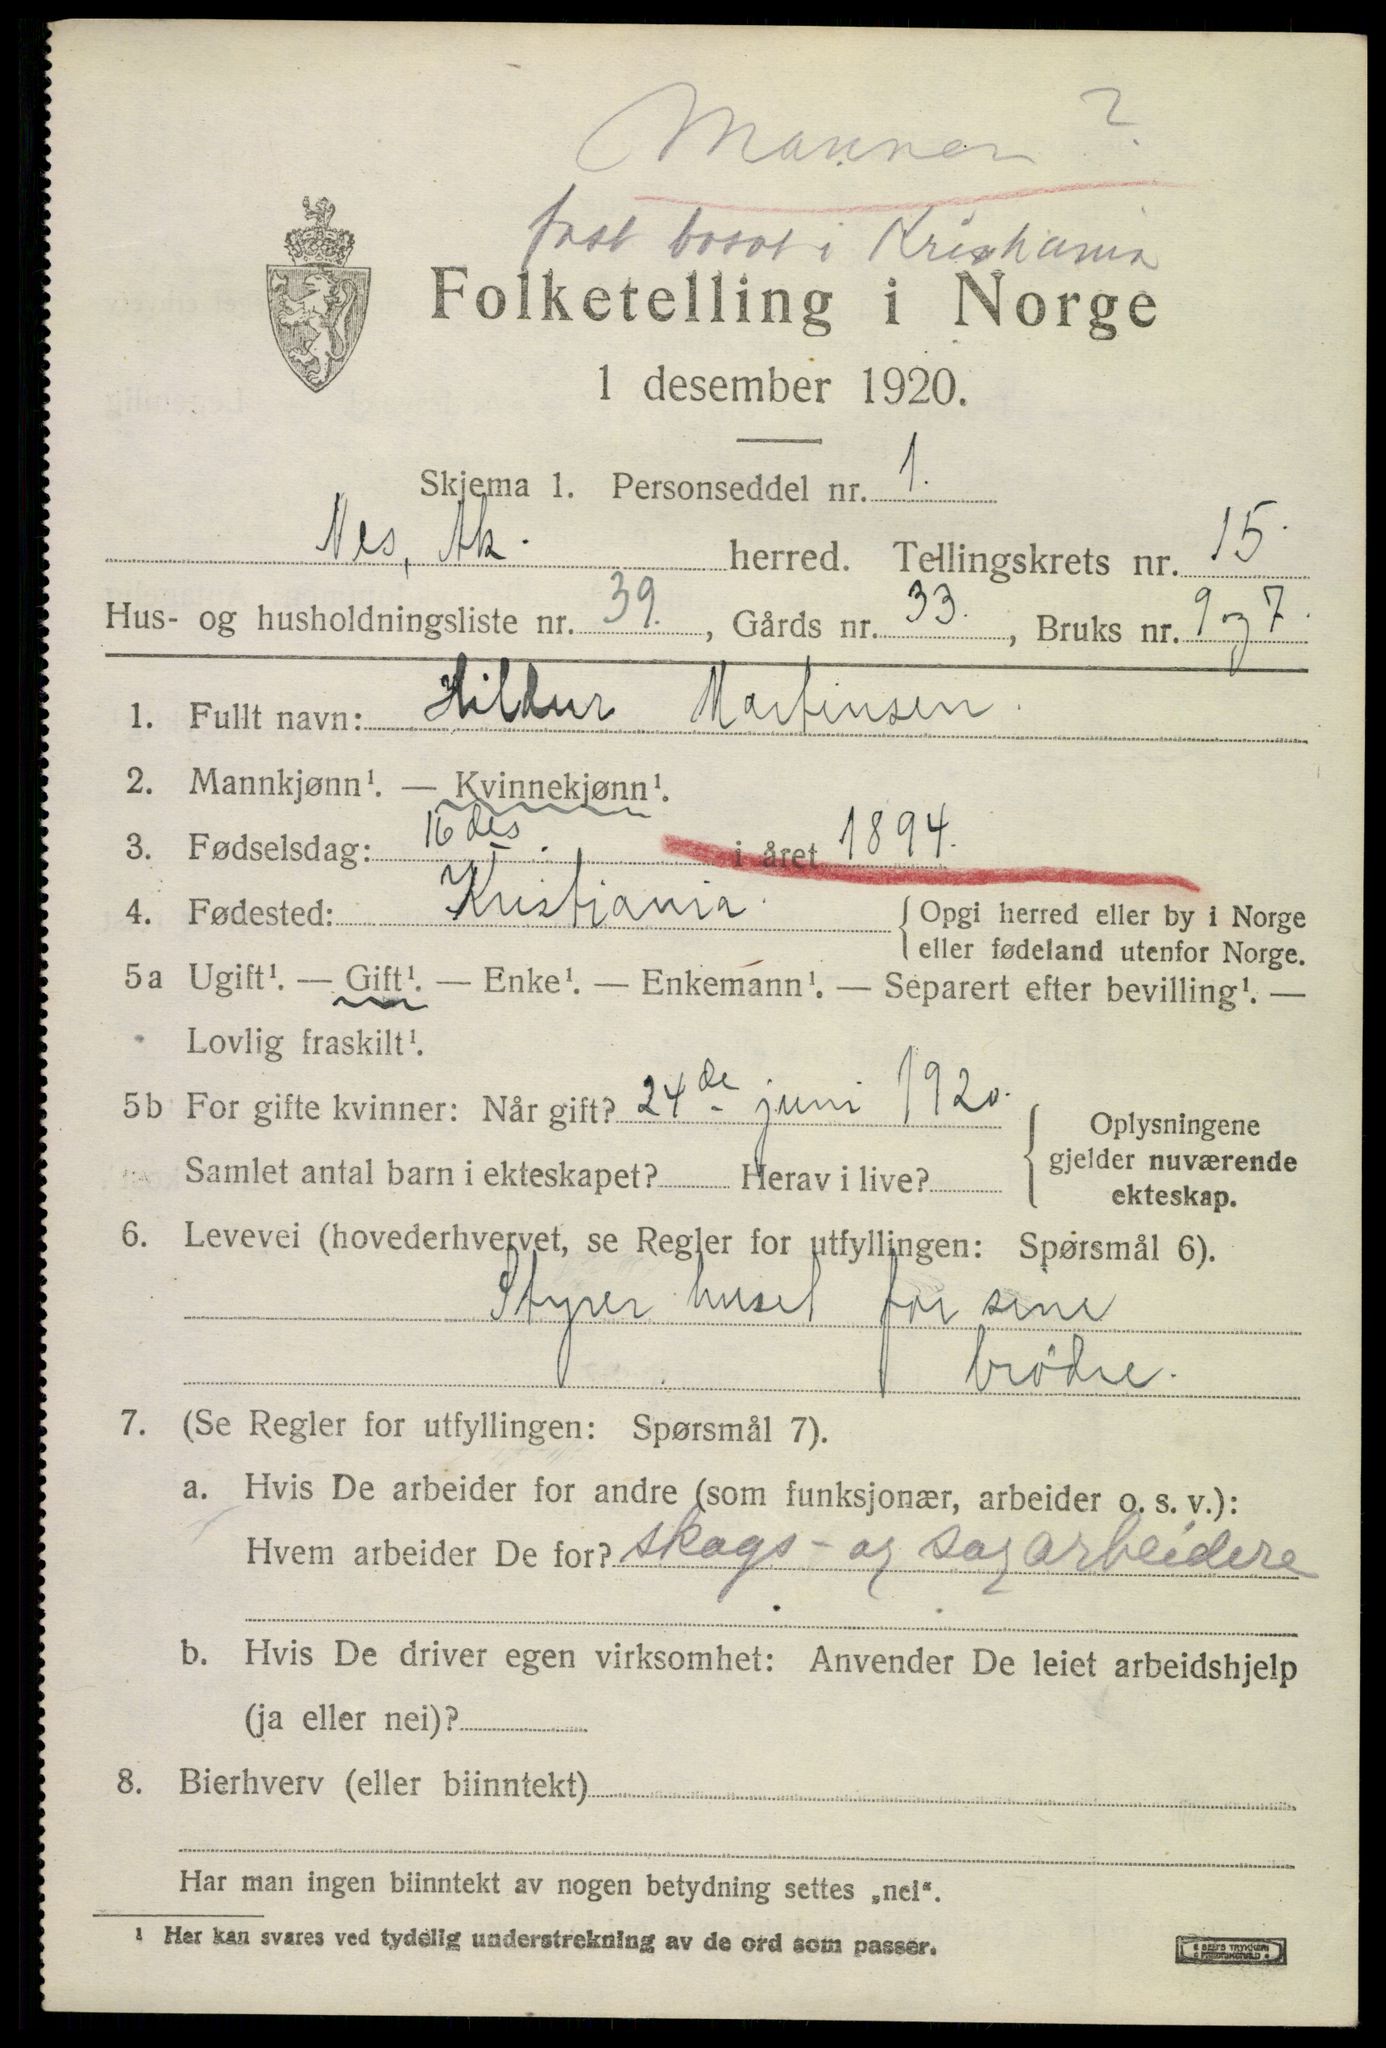 Mannen ?
fast bosat i Kristiania
Folketelling i Norge
1 desember 1920.
Skjema 1. Personseddel nr. 1.
Nes, Ak. herred. Tellingskrets nr. 15.
Hus- og husholdningsliste nr. 39., Gårds nr. 33., Bruks nr. 9 og 7.
1. Fullt navn: Hildur Martinsen.
2. Mannkjønn¹. — Kvinnekjønn¹.
3. Fødselsdag: 16 des. i året 1894.
4. Fødested: Kristiania. { Opgi herred eller by i Norge
eller fødeland utenfor Norge.
5a Ugift¹. — Gift¹. — Enke¹. — Enkemann¹. — Separert efter bevilling¹. —
Lovlig fraskilt¹.
5b For gifte kvinner: Når gift? 24de juni 1920.
Samlet antal barn i ekteskapet? Herav i live?
{ Oplysningene
gjelder nuværende
ekteskap.
6. Levevei (hovederhvervet, se Regler for utfyllingen: Spørsmål 6).
Styrer huset for sine
brödre.
7. (Se Regler for utfyllingen: Spørsmål 7).
a. Hvis De arbeider for andre (som funksjonær, arbeider o. s. v.):
Hvem arbeider De for? skogs- og sagarbeidere
b. Hvis De driver egen virksomhet: Anvender De leiet arbeidshjelp
(ja eller nei)?
8. Bierhverv (eller biinntekt)
Har man ingen biinntekt av nogen betydning settes „nei“.
¹ Her kan svares ved tydelig understrekning av de ord som passer.